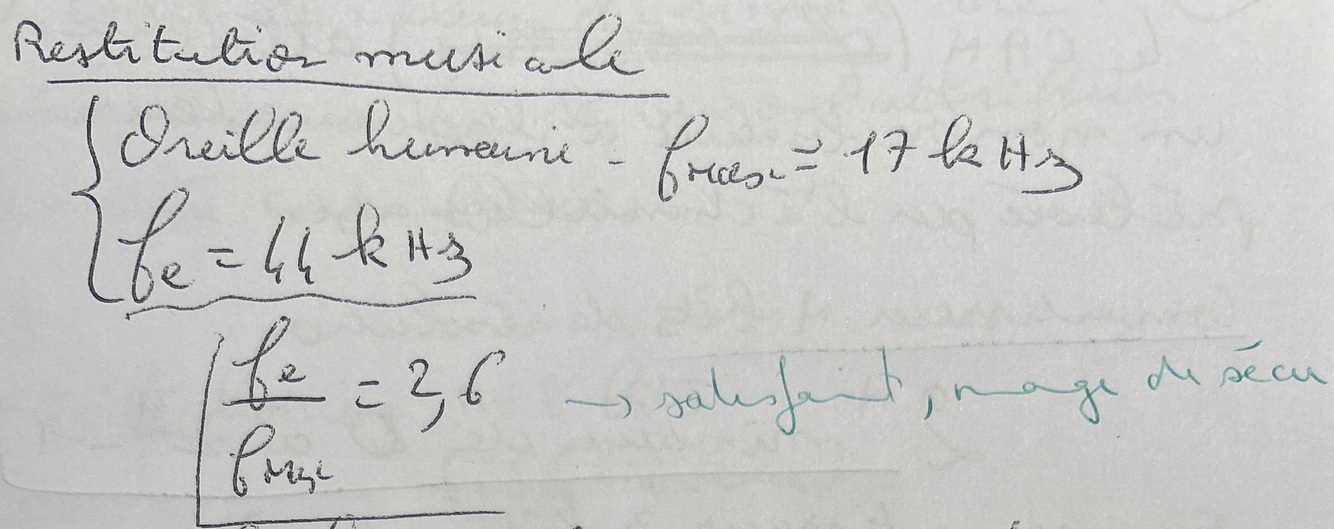 Restitution musicale
Oreille humaine - fmax = 17 kHz
fe = 44 kHz
fe/fmax = 2,6 → satisfait, marge de sécu